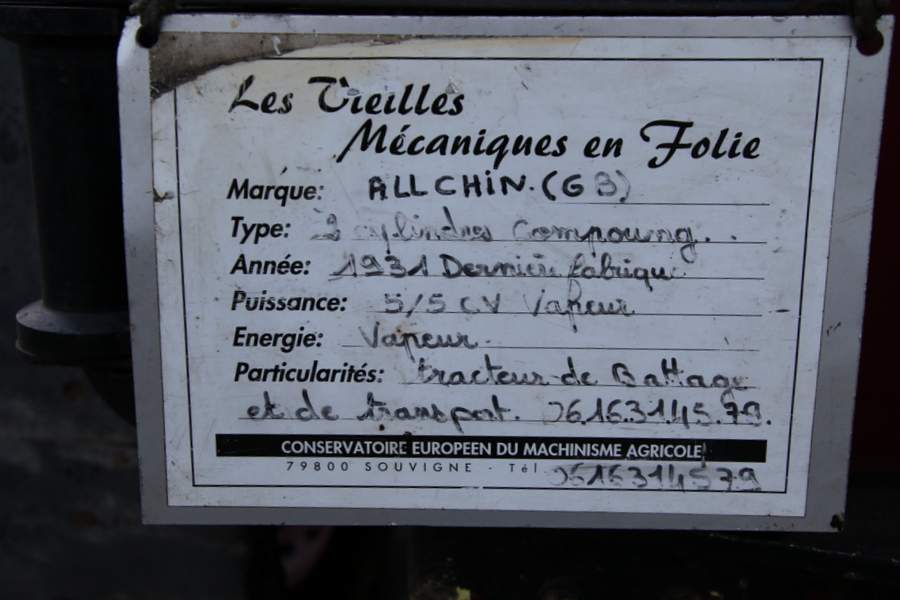 Les Vieilles
Mécaniques en Folie
Marque: ALLCHIN. (GB)
Type: 2 cylindres Compoung.
Année: 1931 Dernière fabrique
Puissance: 5/5 CV Vapeur
Energie: Vapeur
Particularités: tracteur de Battage
et de transport. 06.16.31.45.79.
CONSERVATOIRE EUROPEEN DU MACHINISME AGRICOLE
79800 SOUVIGNE - Tél 0616314579